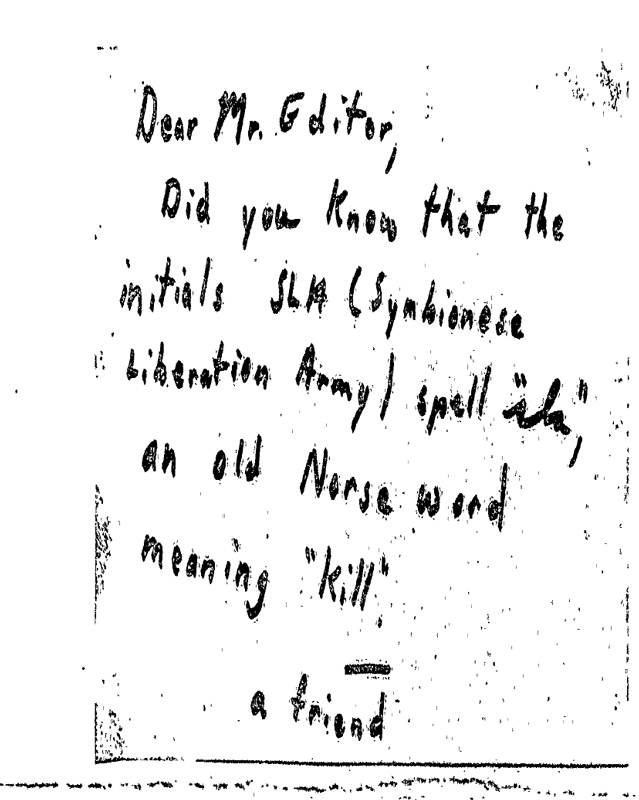 Dear Mr. Editor,
Did you know that the
initials SLA (Symbionese
Liberation Army) spell "sla,"
an old Norse word
meaning "kill".
a friend